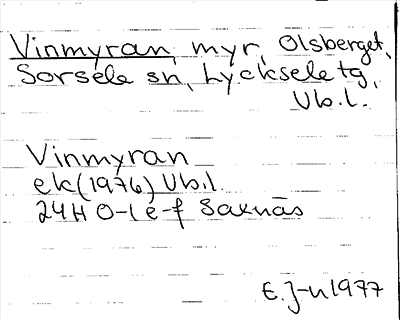 Vinmyran, myr, Olsberget,
Sorsele sn, Lycksele tg,
Vb.l.
Vinmyran
ek (1976) Vb.l.
24H 0-1 e-f Saxnäs
E.J-n 1977